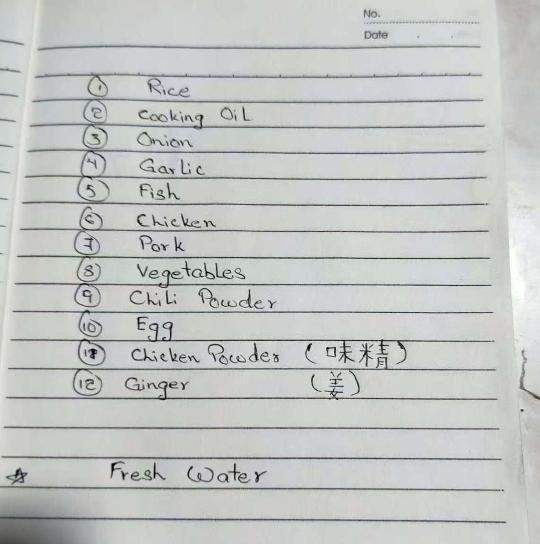 No.
Date
1 Rice
2 Cooking Oil
3 Onion
4 Garlic
5 Fish
6 Chicken
7 Pork
8 Vegetables
9 Chili Powder
10 Egg
11 Chicken Powder (味精)
12 Ginger (姜)
☆ Fresh Water